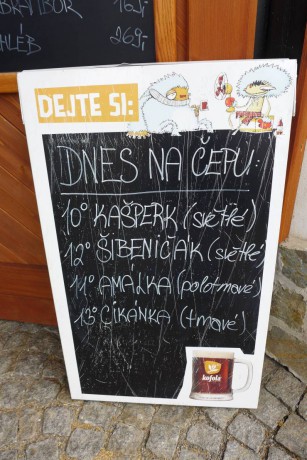 BRAMBOR 169,-
CHLÉB 269,-
DEJTE SI:
DNES NA ČEPU:
10° KAŠPERK (světlé)
12° ŠIBENIČÁK (světlé)
11° AMÁLKA (polotmavé)
13° CIKÁNKA (tmavé)
kofola